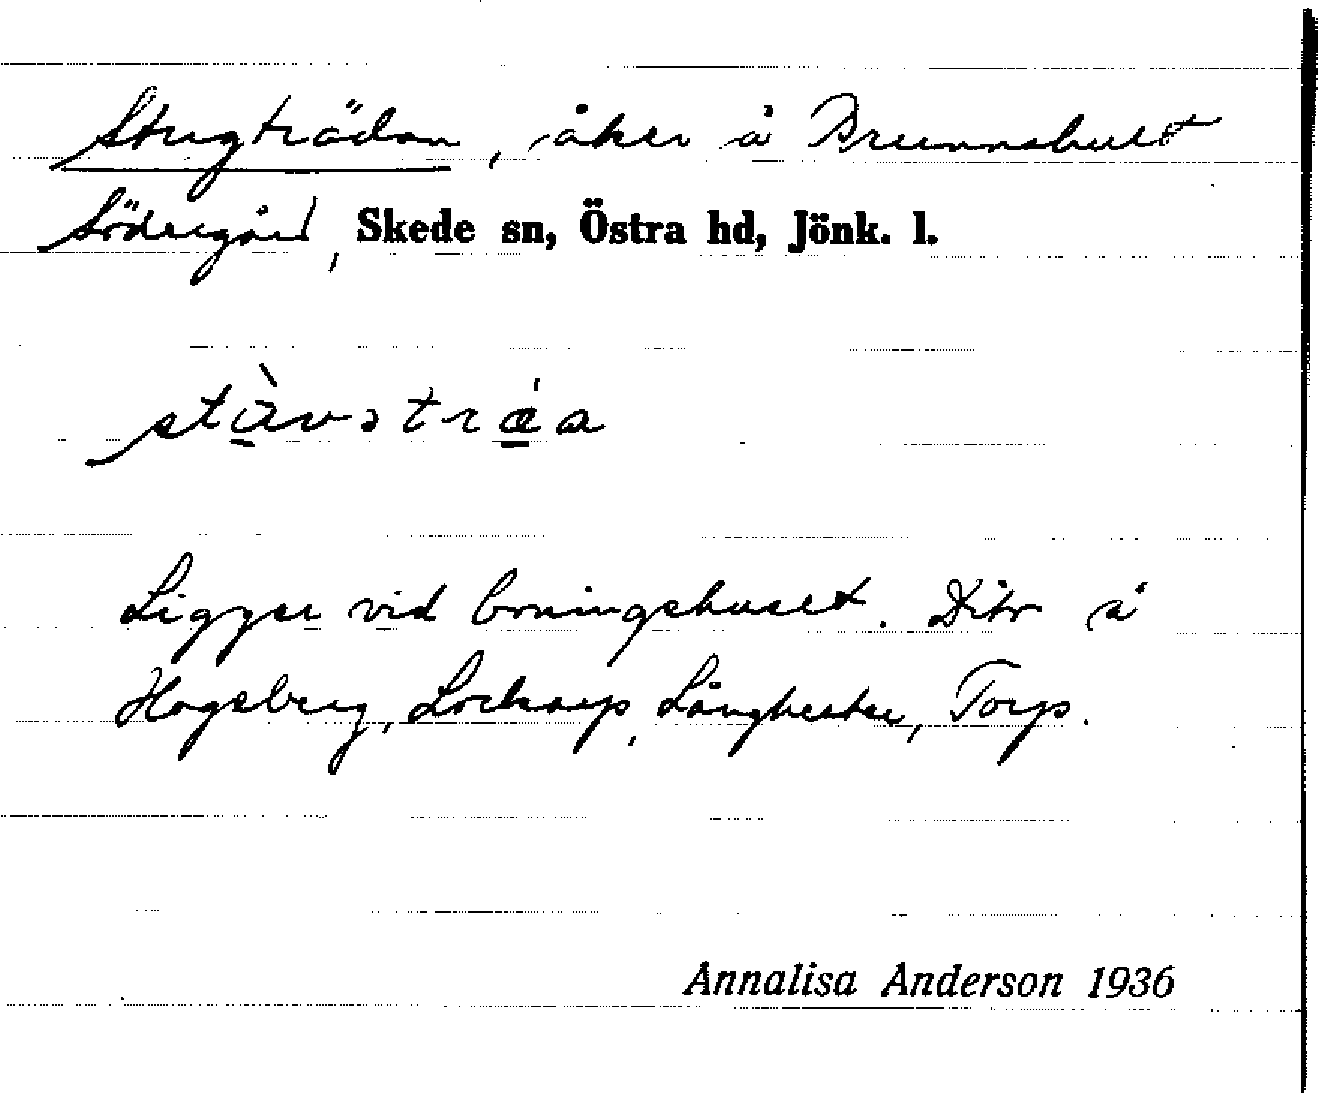 Stugträdan, åker å Brunnshult
Södergård, Skede sn, Östra hd, Jönk. l.
Ligger vid boningshuset. Dito å
Hagsberg, Lockarp, Långhester, Torp.
Annalisa Anderson 1936